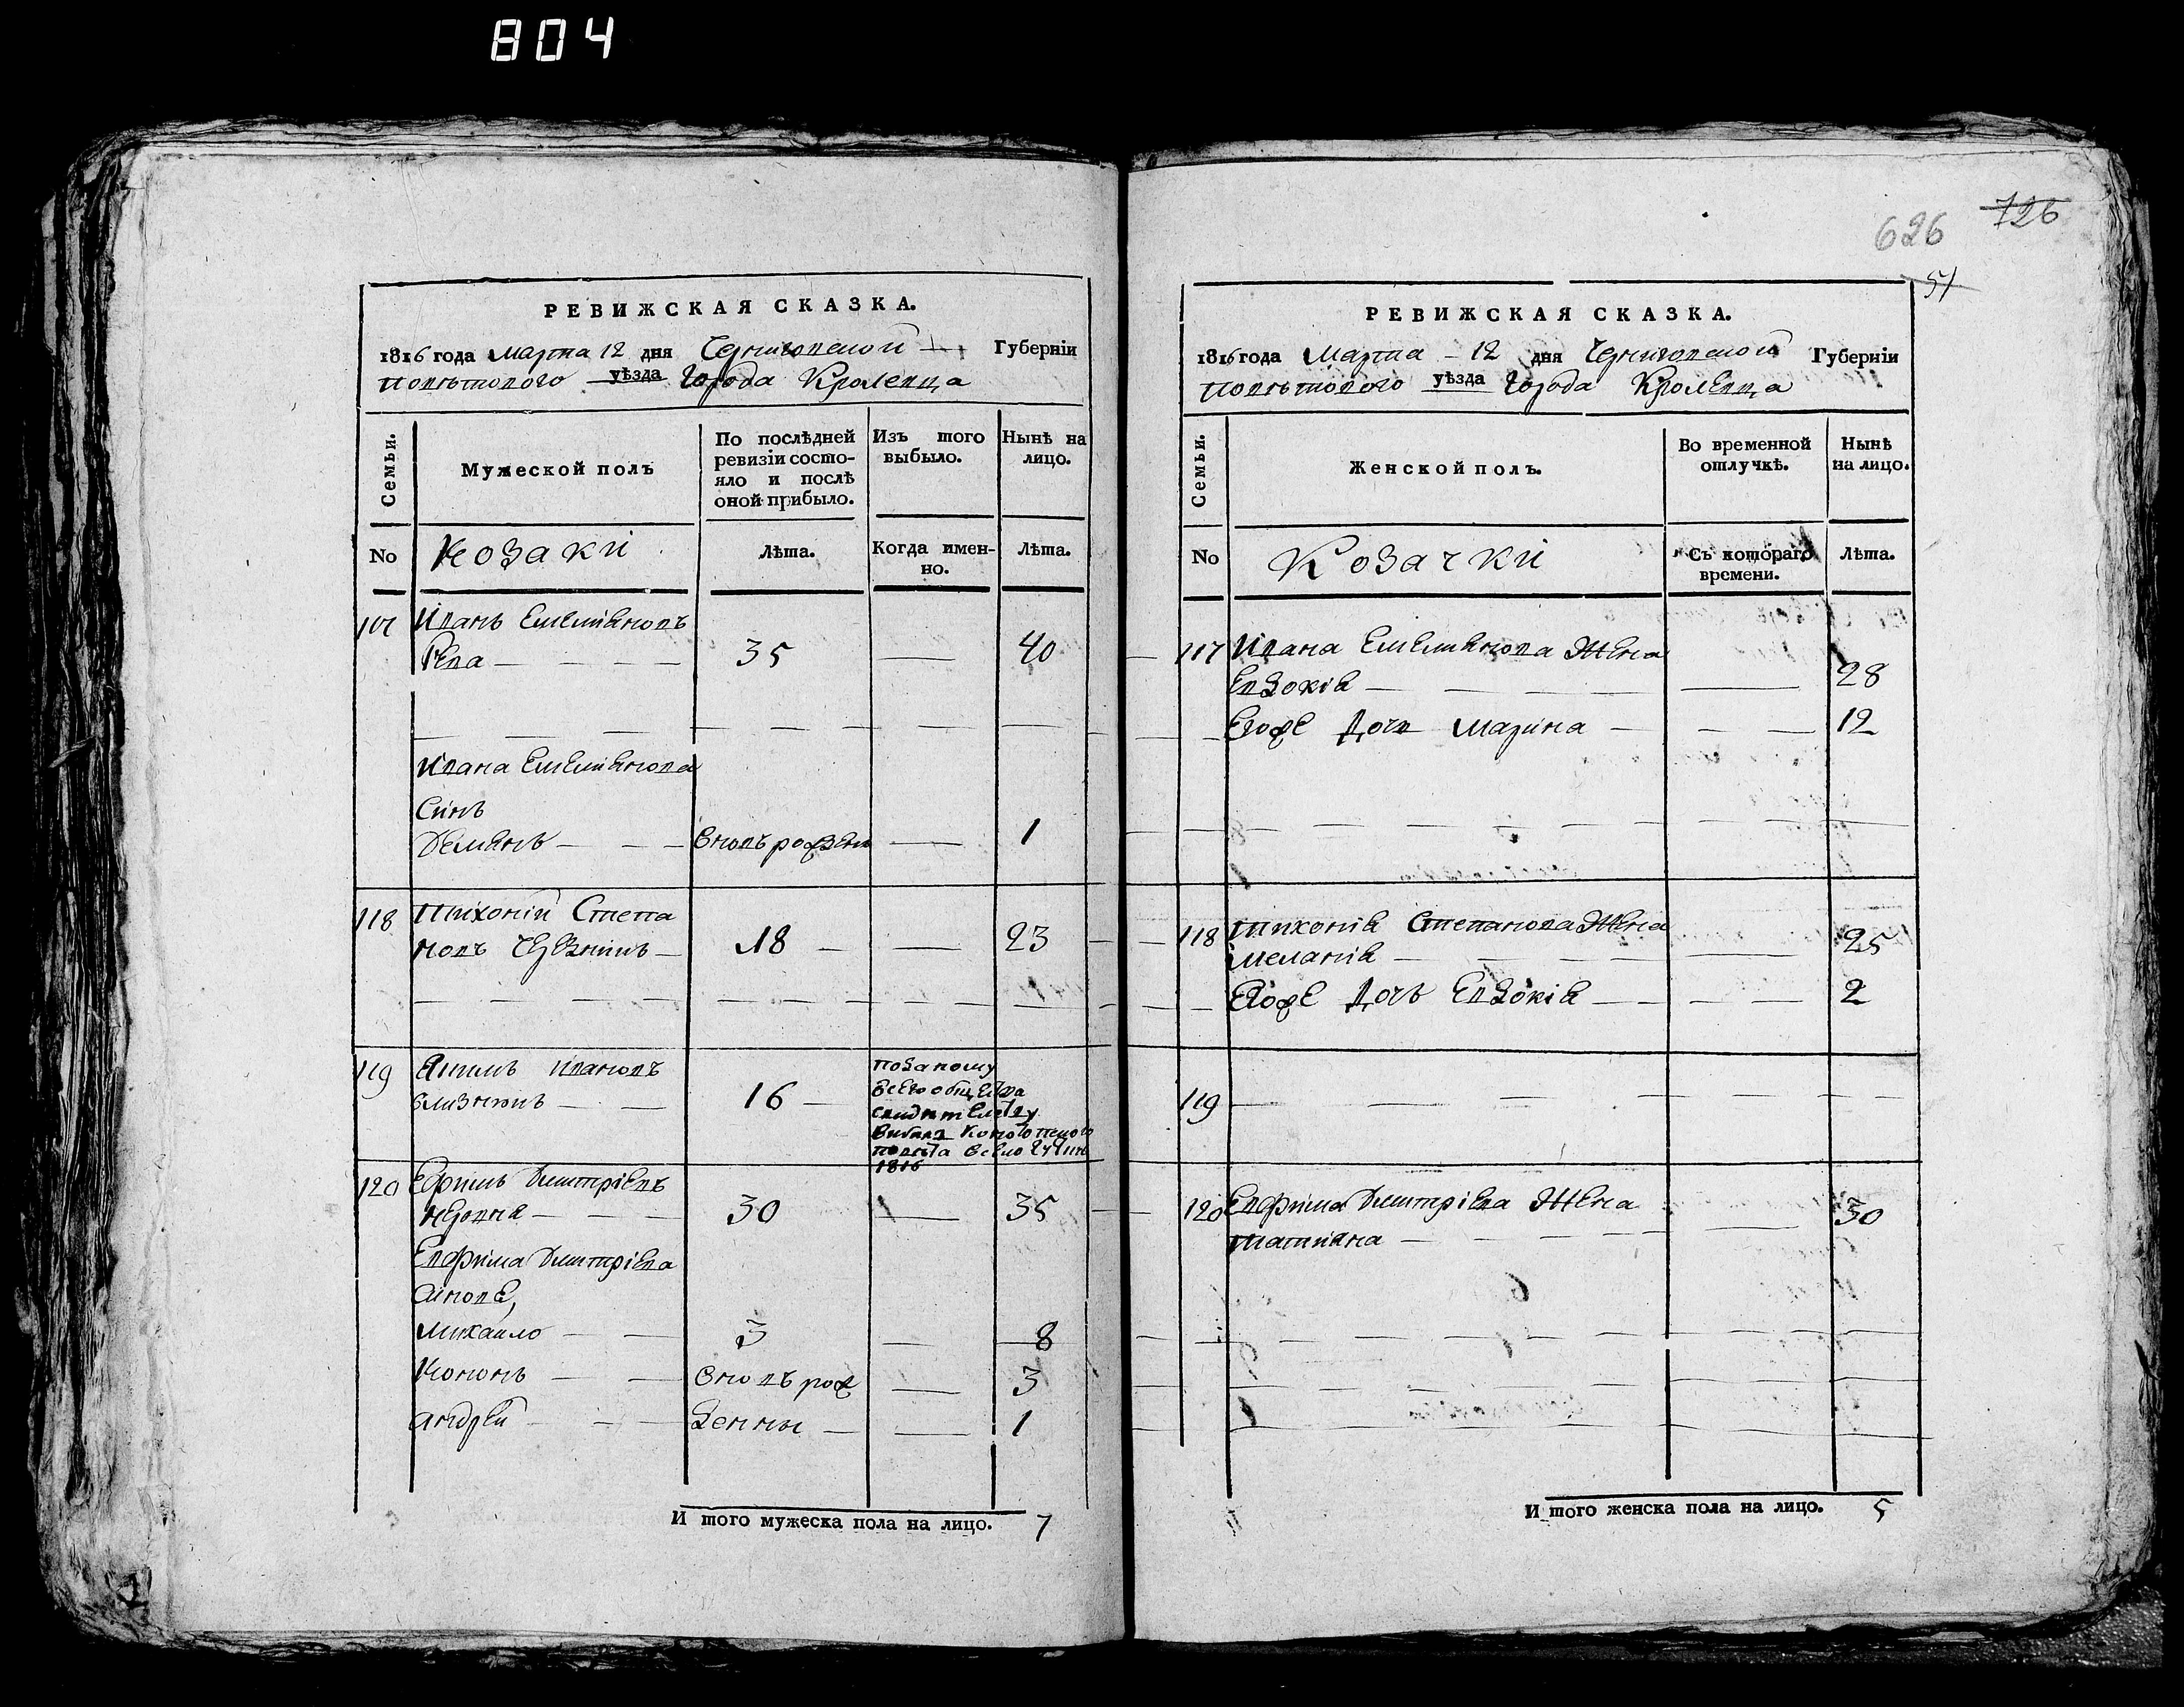 804
626 726
51
РЕВИЖСКАЯ СКАЗКА.
1816 года Марта 12 дня Черниговской Губерніи
поветового уѣзда Города Кролевца
Семьи.
Мужеской полъ
По послѣдней ревизіи состо-
яло и послѣ
оной прибыло.
Изъ того выбыло.
Нынѣ на лицо.
No
Козаки
Лѣта.
Когда имен-
но.
Лѣта.
117 Иванъ Емеляновъ
Рева 35 40
Ивана Емелянова
Синъ
Демянъ вновъ рожденъ 1
118 Тихоній Степа
новъ 18 23
119 Якимъ Ивановъ
16
1816
120 Ефримъ Дмитріевъ
30 35
Евфрима Дмитріева
Синове,
Михайло 3 8
Кононъ вновъ рож 3
Андрей денны 1
И того мужеска пола на лицо. 7
РЕВИЖСКАЯ СКАЗКА.
1816 года Марта 12 дня Черниговской Губерніи
поветового уѣзда Города Кролевца
Семьи.
Женской полъ.
Во временной отлучкѣ.
Нынѣ на лицо.
No
Козачки
Съ котораго времени.
Лѣта.
117 Ивана Емелянова Жена
Евдокія 28
Егоже Дочь Марина 12
118 Тихонія Степанова Жена
Меланія 25
Егоже Дочъ Евдокія 2
119
120 Евфрима Дмитріева Жена
Татияна 30
И того женска пола на лицо. 5